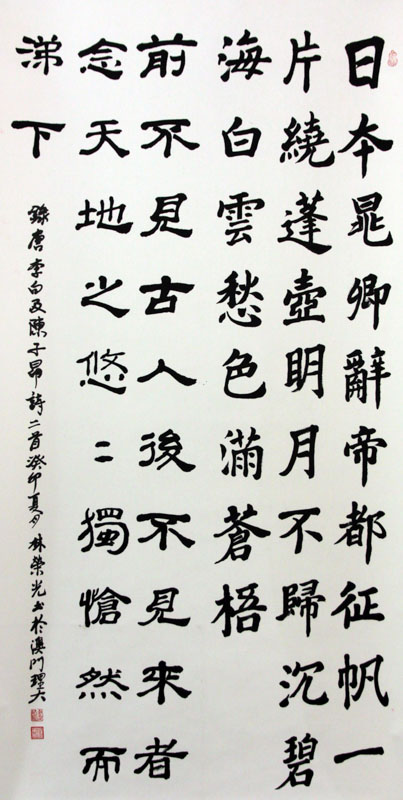 日本晁卿辭帝都征帆一
片繞蓬壺明月不歸沉碧
海白雲愁色滿蒼梧
前不見古人後不見來者
念天地之悠〻獨愴然而
涕下
錄唐李白及陳子昂詩二首癸卯夏月林榮光書於澳門理大